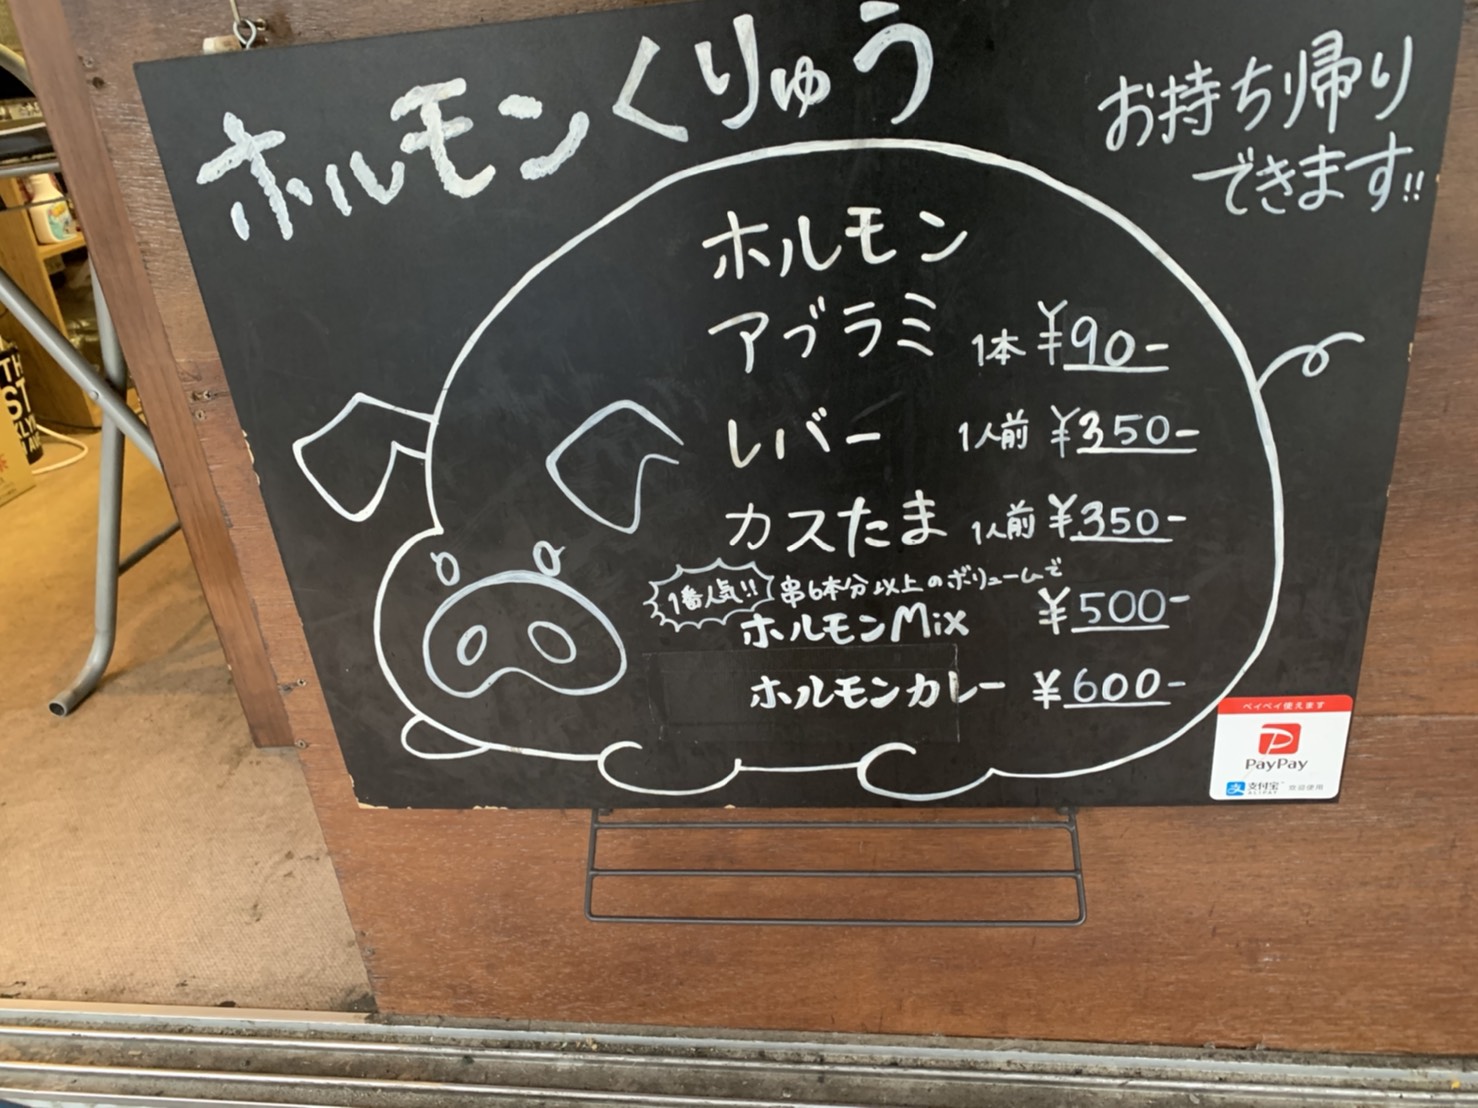 ホルモンくりゅう
お持ち帰り
できます!!
ホルモン
アブラミ 1本 ¥90-
レバー 1人前 ¥350-
カスたま 1人前 ¥350-
1番人気!! 串6本分以上のボリュームで
ホルモンMix ¥500-
ホルモンカレー ¥600-
ペイペイ使えます
PayPay
支付宝
ALIPAY
TH
ST